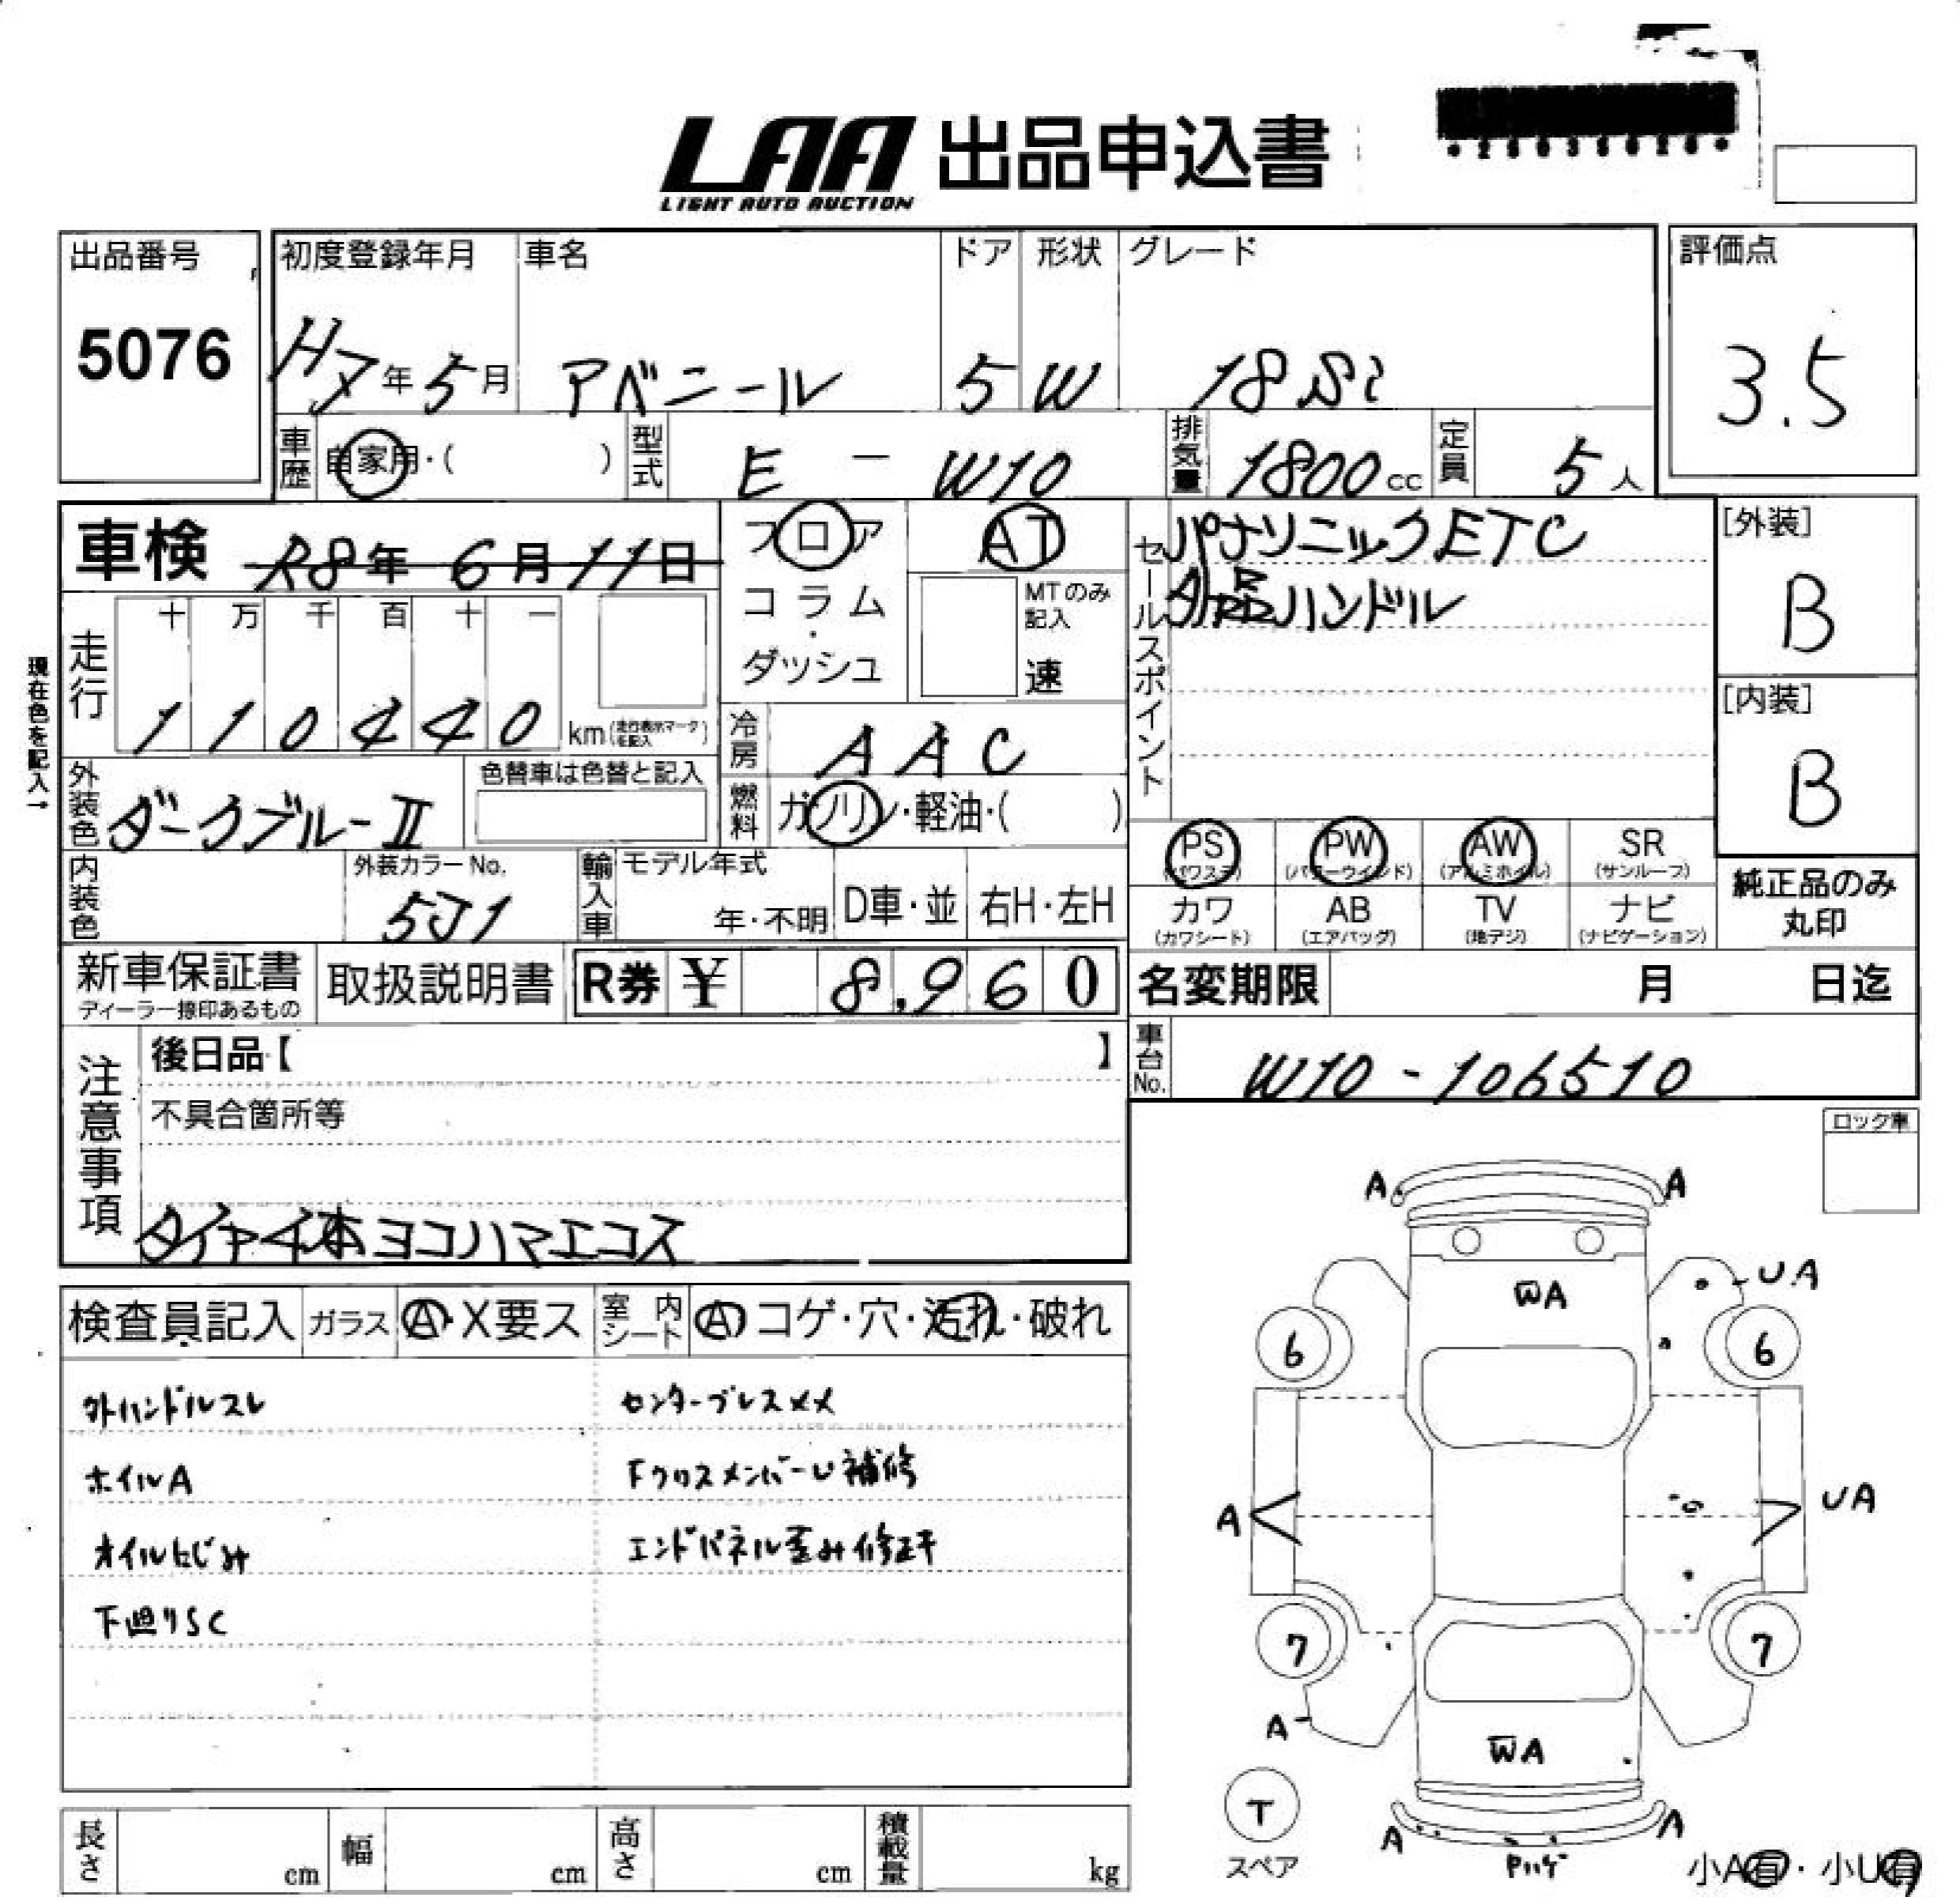 LAA 出品申込書
LIGHT AUTO AUCTION
出品番号
5076
初度登録年月
H7年5月
車名
アベニール
ドア
5
形状
W
グレード
18Si
評価点
3.5
車歴
自家用・( )
型式
E - W10
排気量
1800cc
定員
5人
車検 R8年6月11日
走行
十 万 千 百 十 一
1 1 0 4 4 0 km(走行表示マークを記入)
現在色を記入→
フロア
コラム
・
ダッシュ
AT
MTのみ記入
速
冷房
AAC
燃料
ガソリン・軽油・( )
セールスポイント
パナソニックETC
外品ハンドル
[外装]
B
[内装]
B
外装色
ダークブルーⅡ
色替車は色替と記入
内装色
外装カラーNo.
5J1
輸入車
モデル年式
年・不明
D車・並
右H・左H
PS
(パワステ)
PW
(パワーウインド)
AW
(アルミホイル)
SR
(サンルーフ)
カワ
(カワシート)
AB
(エアバッグ)
TV
(地デジ)
ナビ
(ナビゲーション)
純正品のみ
丸印
新車保証書
ディーラー捺印あるもの
取扱説明書
R券 ¥ 8,960
名変期限 月 日迄
車台No.
W10-106510
注意事項
後日品【 】
不具合箇所等
タイヤ4本ヨコハマエコス
ロック車
検査員記入
ガラス
A・X要ス
室内シート
A コゲ・穴・汚れ・破れ
外ハンドルスレ
ホイルA
オイルにじみ
下廻りSC
センタープレスメメ
FクロスメンバーU補修
エンドパネル歪み修正キ
A A
WA
UA
6 6
A
UA
7 7
A
WA
T
スペア
A A
Pハゲ
小A有・小U有
長さ cm
幅 cm
高さ cm
積載量 kg